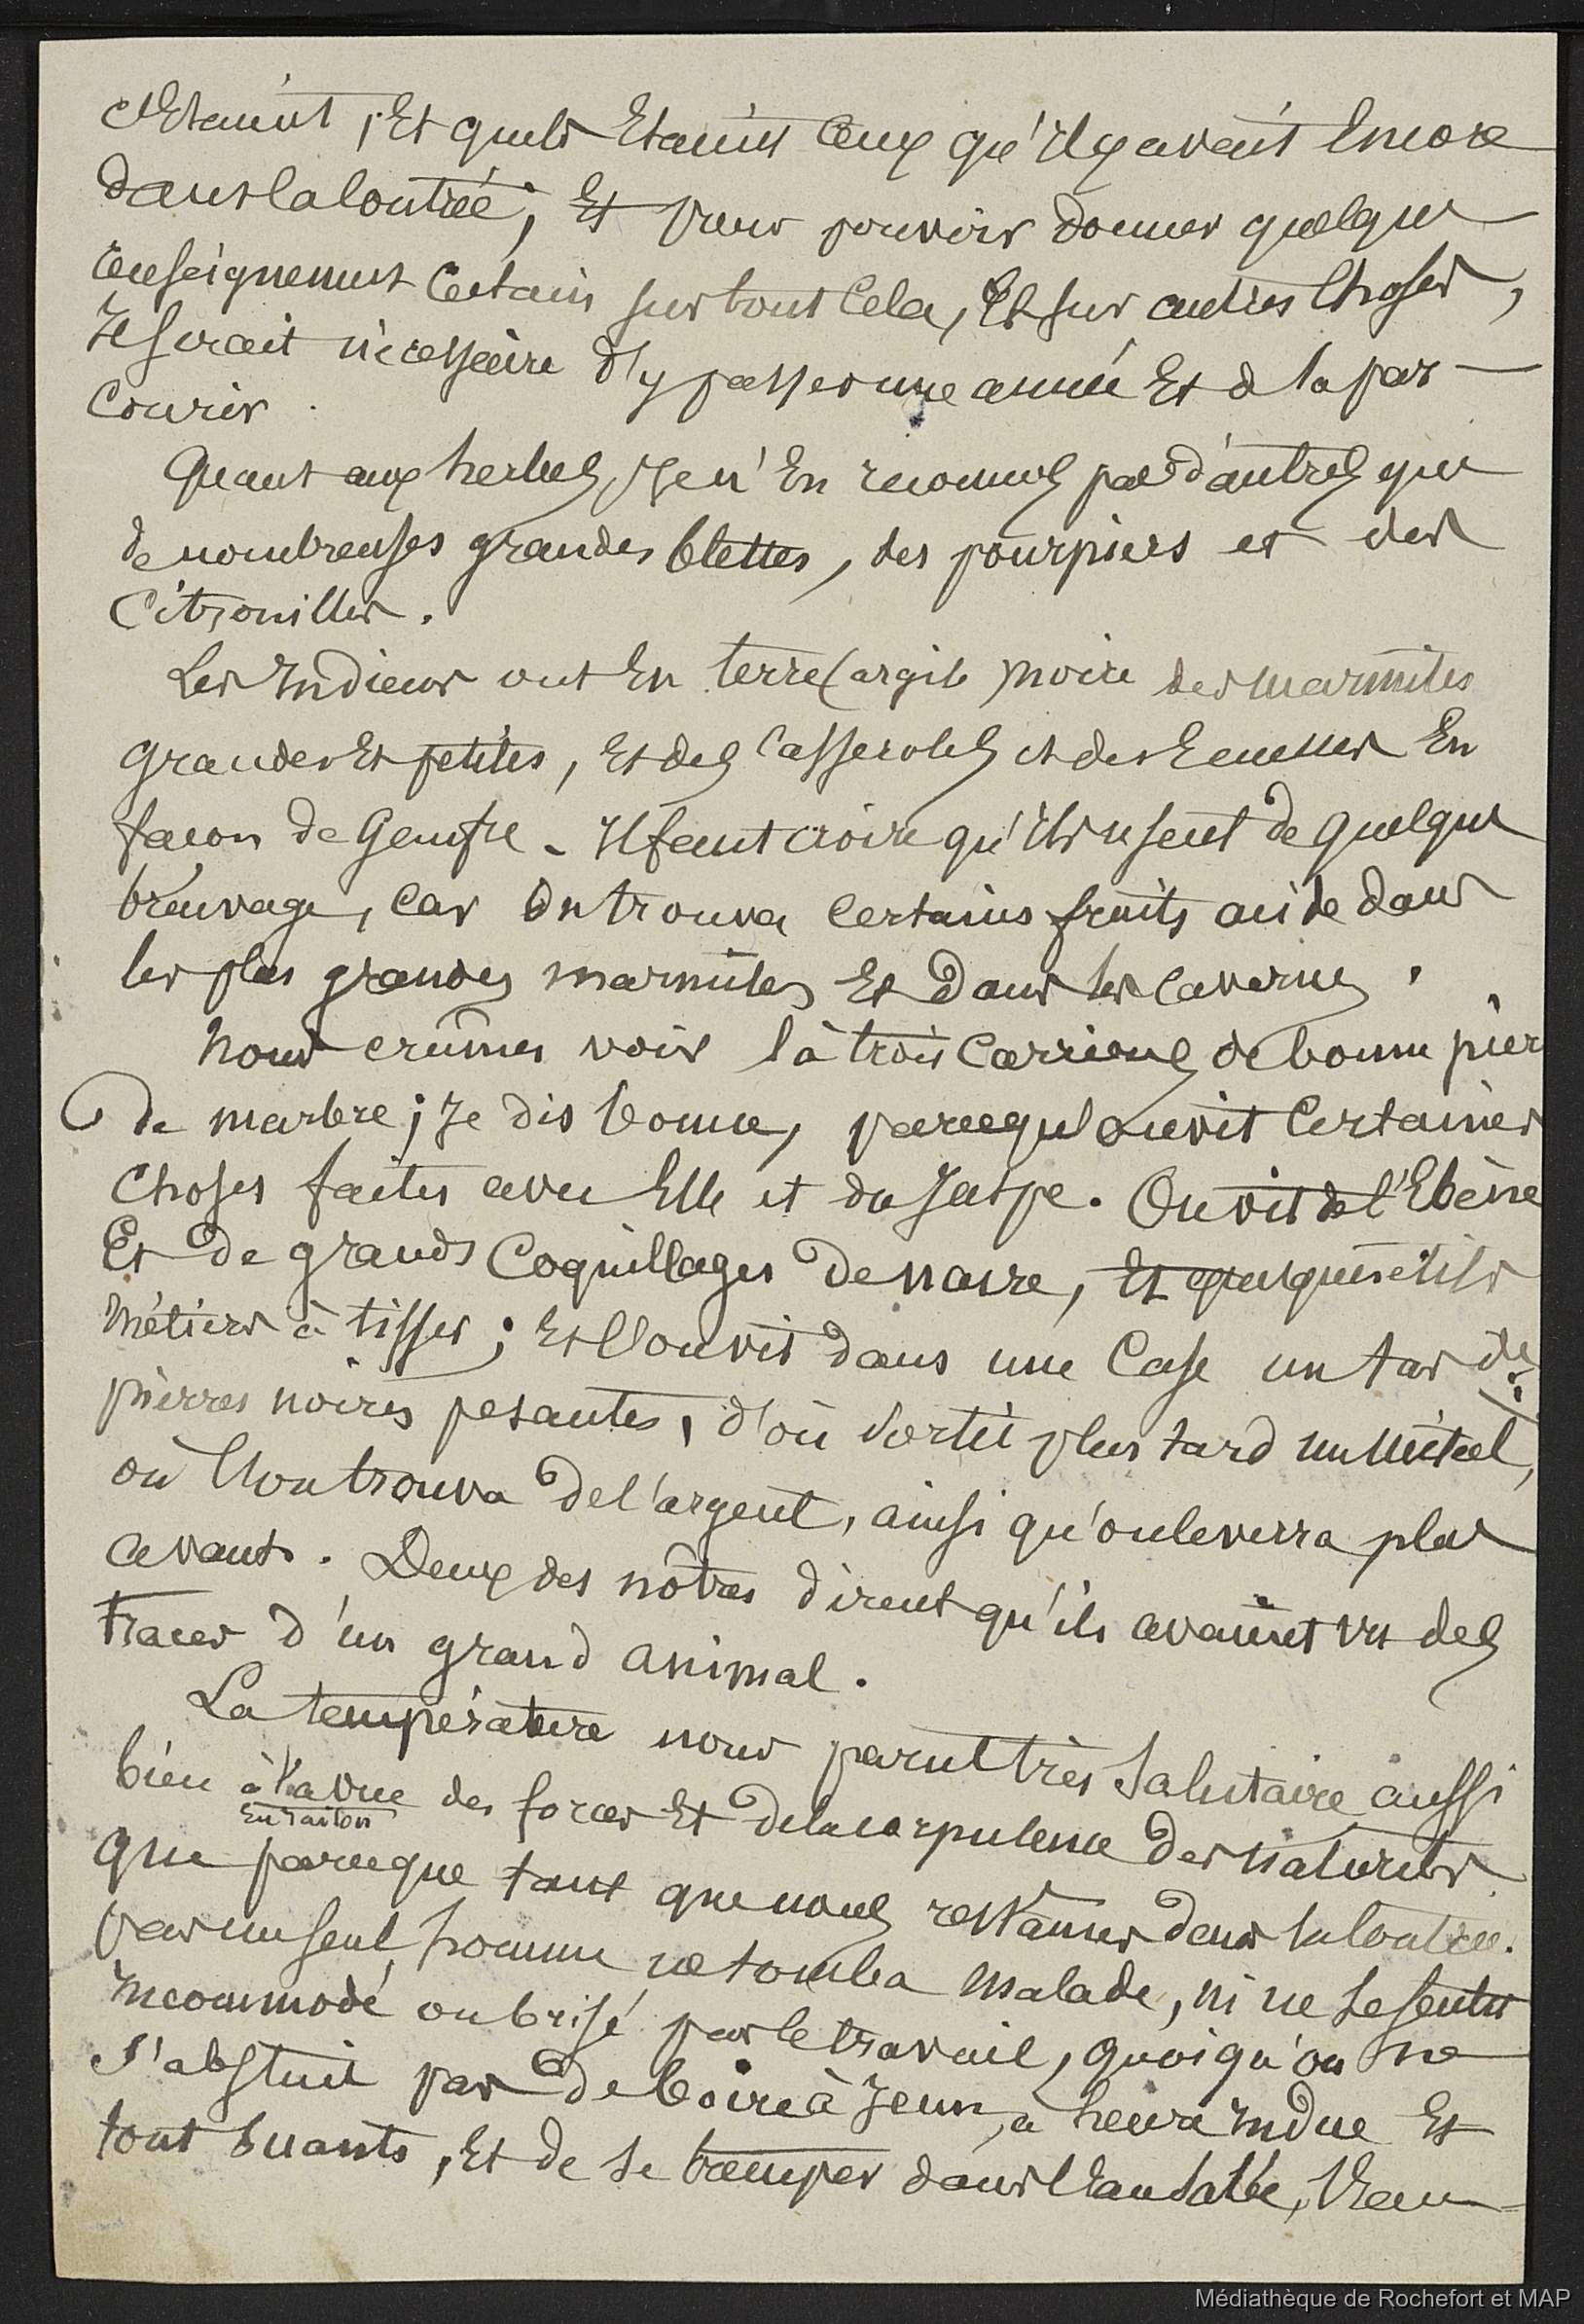 c'Etaient, Et quels Etaient Ceux qu'Il y avait Encore
dans la Contrée; Et pour pouvoir donner quelques
renseignements Certains sur tout Cela, Et sur autres Choses,
Il serait nécessaire d'y passer une année Et de la par-
Courir.
Quant aux herbes, Je n'En reconnus pas d'autres que
de nombreuses grandes blettes, des pourpiers et des
Citrouilles.
Les Indiens ont En terre (argile) noire des marmites
grandes Et petites, Et des Casseroles et des Ecuelles En
façon de
Il faut croire qu'ils usent de quelque
breuvage, Car On trouva Certains fruits acide dans
les plus grandes marmites Et dans les Cavernes.
Nous crûmes voir là trois Carrières de bonne pier
de marbre; Je dis bonne, parcequ'on vit Certaines
Choses faites avec Elle et du Jaspe. On vit de l'Ebène
Et de grands Coquillages de nacre, Et quelques
métiers à tisser; Et l'on vit dans une Case un tas de
pierres noires pesantes, d'où sortit plus tard un métal,
où l'on trouva de l'argent, ainsi qu'on le verra plus
avant. Deux des nôtres dirent qu'ils avaient vu des
traces d'un grand animal.
La température nous parut très Salutaire, aussi
bien à la vue des forces Et de la corpulence des naturels
En raison
que parceque tant que nous restâmes dans la Contrée.
pas un seul homme ne tomba malade, ni ne se sentit
Incommodé ou brisé par le travail, quoiqu'on ne
s'abstint pas de boire à Jeun, à heure Indue Et
tout suants, Et de se tremper dans l'Eau salée, l'Eau
Médiathèque de Rochefort et MAP